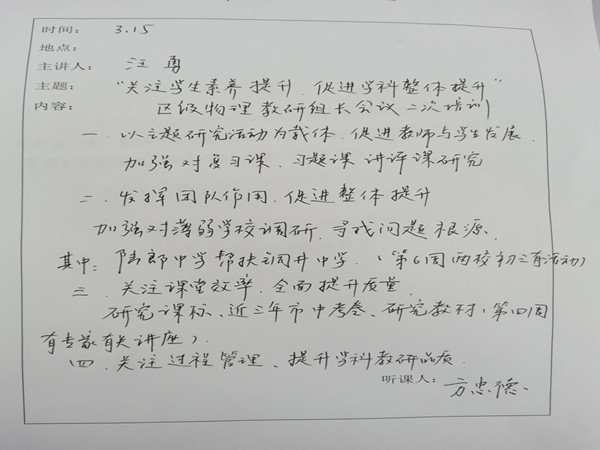 时间: 3.15
地点:
主讲人: 汪勇
主题: “关注学生素养提升 促进学科整体提升”
内容: 区级物理教研组长会议二次培训
一、以主题研究活动为载体、促进教师与学生发展.
加强对复习课、习题课 讲评课研究
二、发挥团队作用、促进整体提升
加强对薄弱学校调研、寻找问题根源.
其中: 陆郎中学帮扶铜井中学.(第6周两校初三有活动)
三、关注课堂效率、全面提升质量
研究课标、近三年市中考卷、研究教材(第四周
有专家有关讲座)
四、关注过程管理、提升学科教研品质.
听课人: 方忠德